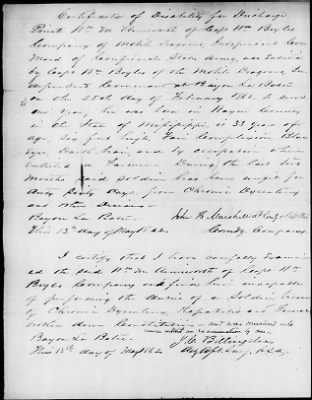 Certificate of Disability for Discharge
Private Wm M of Capt Wm Boyles
Company of Mobile Dragoons, Independent Com
mand of Confederate States Army, was enlisted
by Capt Wm Boyles of the Mobile Dragoons, In-
dependent Command at Bayou La Batre
on the 28th day of February 1862, to serve
one year, he was born in Wayne County
in the State of Mississippi is 33 years of
age, Six feet high, Fair Complexion, Blue
eyes, Dark hair, and by occupation when
enlisted a Farmer. During the last two
months said soldier has been unfit for
duty Sixty days. from Chronic Dysentery
and other Diseases
Bayou La Batre John H. Marshall 1st Lieut
This 13th day of May 1862 Comdg Company
I certify that I have carefully Examin
ed the said Wm M of Capt Wm
Boyles Company and find him incapable
of performing the duties of a Soldier because
of Chronic Dysentery, and
broken down Constitution and was mustered into
service without an examination by me
Bayou La Batre J. C. Billingslea
This 13th day of May 1862 Asst Surg